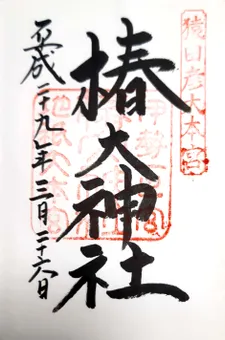 猿田彦大本宮
椿大神社
平成二十九年三月二十六日